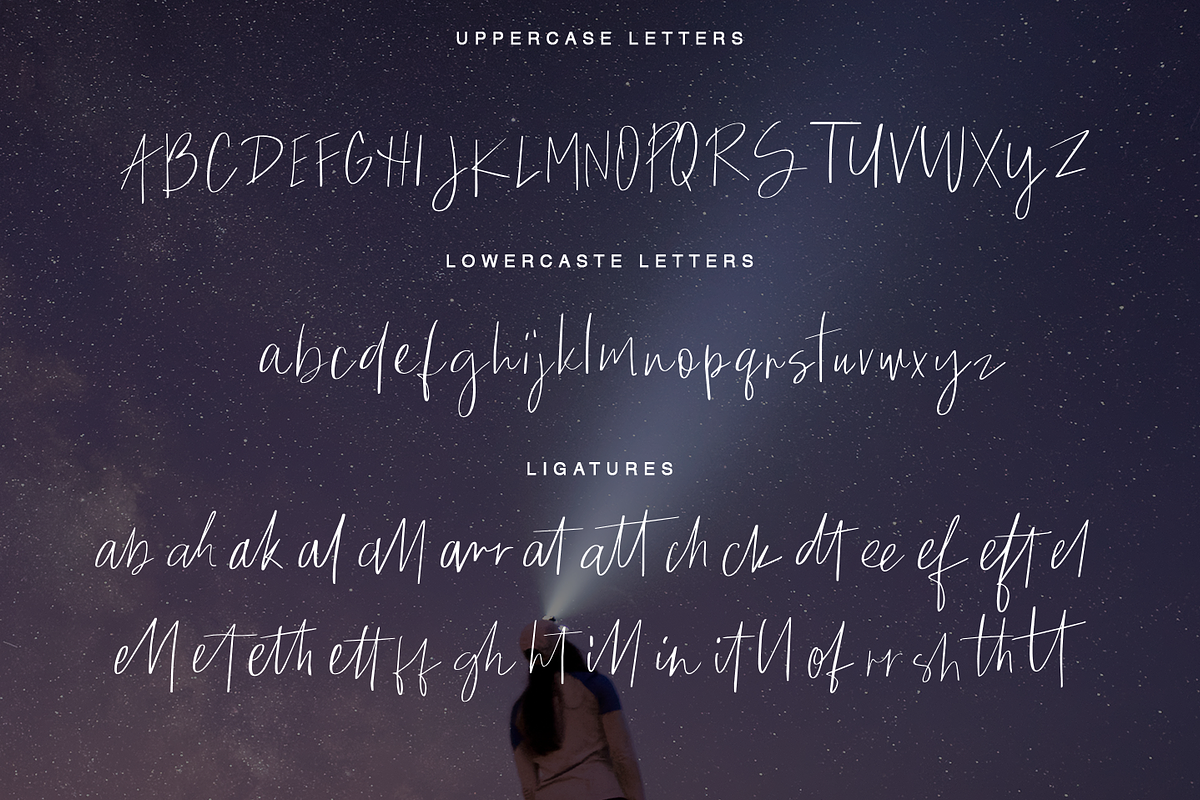 UPPERCASE LETTERS
ABCDEFGHIJKLMNOPQRSTUVWXyZ
LOWERCASTE LETTERS
abcdefghijklmnopqrstuvwxyz
LIGATURES
ab ah ak al all arr at att ch ck dt ee ef eft el
ell et eth ett ff gh ht ill in it ll of rr sh th tt